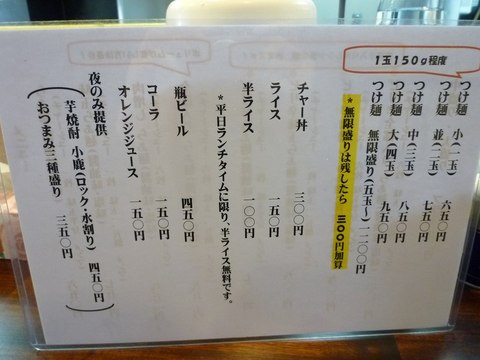 1玉150g程度
つけ麺 小(一玉) 六五〇円
つけ麺 並(二玉) 七五〇円
つけ麺 中(三玉) 八五〇円
つけ麺 大(四玉) 九五〇円
つけ麺 無限盛り(五玉~) 一一〇〇円
*無限盛りは残したら 三〇〇円加算
チャー丼 三〇〇円
ライス 一五〇円
半ライス 一〇〇円
*平日ランチタイムに限り、半ライス無料です。
瓶ビール 四五〇円
コーラ 一五〇円
オレンジジュース 一五〇円
夜のみ提供
芋焼酎 小鹿(ロック・水割り) 四五〇円
おつまみ三種盛り 三五〇円